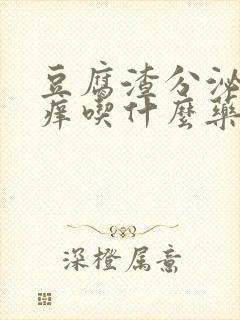 豆腐渣分泌
痒喫什麼藥
深橙属意